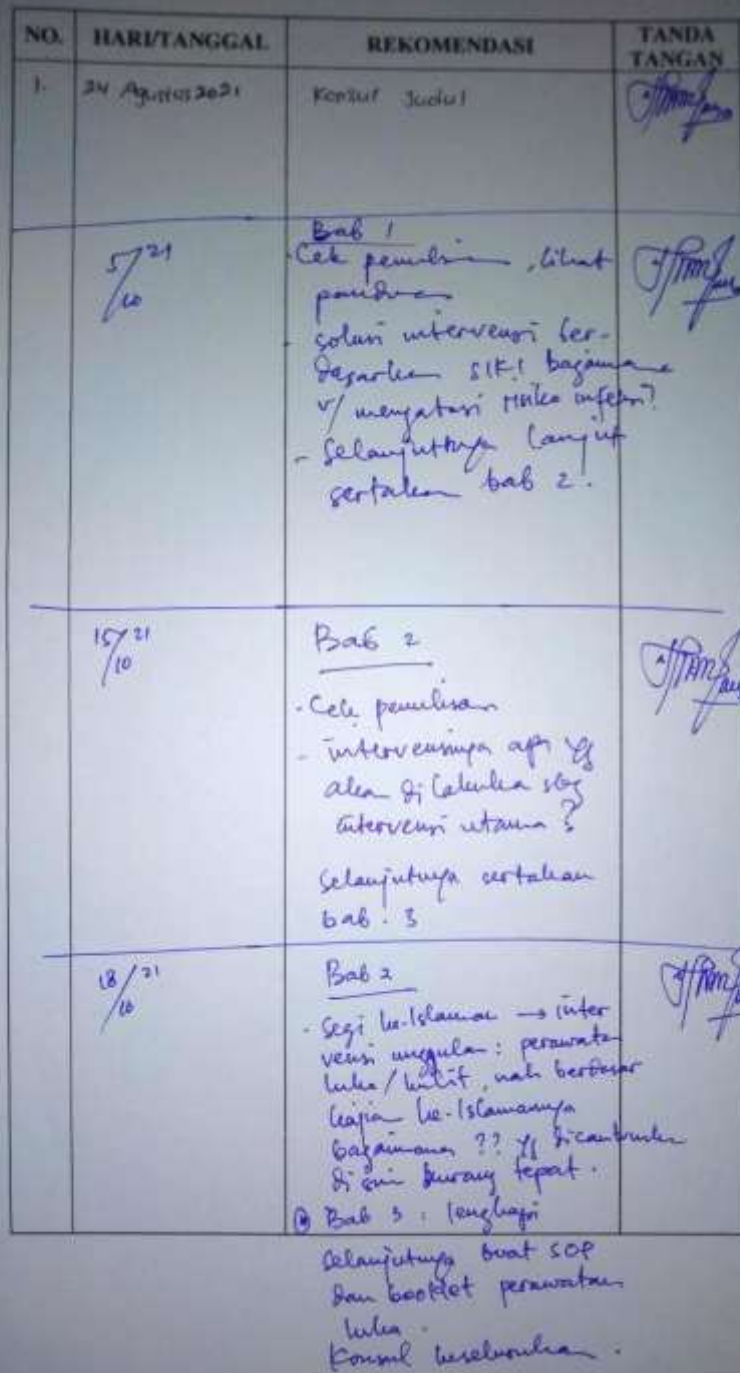 NO. HARI/TANGGAL REKOMENDASI TANDA TANGAN
1. 24 Agustus 2021 Konsul Judul
5/10 21
Bab 1
- Cek penulisan, lihat
panduan
- solusi intervensi ber-
dasarkan SIKI bagaimana
u/ mengatasi risiko infeksi?
- Selanjutnya lanjut
sertakan bab 2.
15/10 21
Bab 2
- Cek penulisan
- intervensinya apa yg
akan dilakukan sbg
intervensi utama?
Selanjutnya sertakan
bab. 3
18/10 21
Bab 2
- Segi ke-Islaman → inter
vensi unggulan: perawatan
luka/kulit, nah berdasar
kajian ke-Islamannya
bagaimana ?? yg dicantumkan
di sini kurang tepat.
Bab 3 : lengkapi
Selanjutnya buat SOP
dan booklet perawatan
luka.
Konsul keseluruhan.